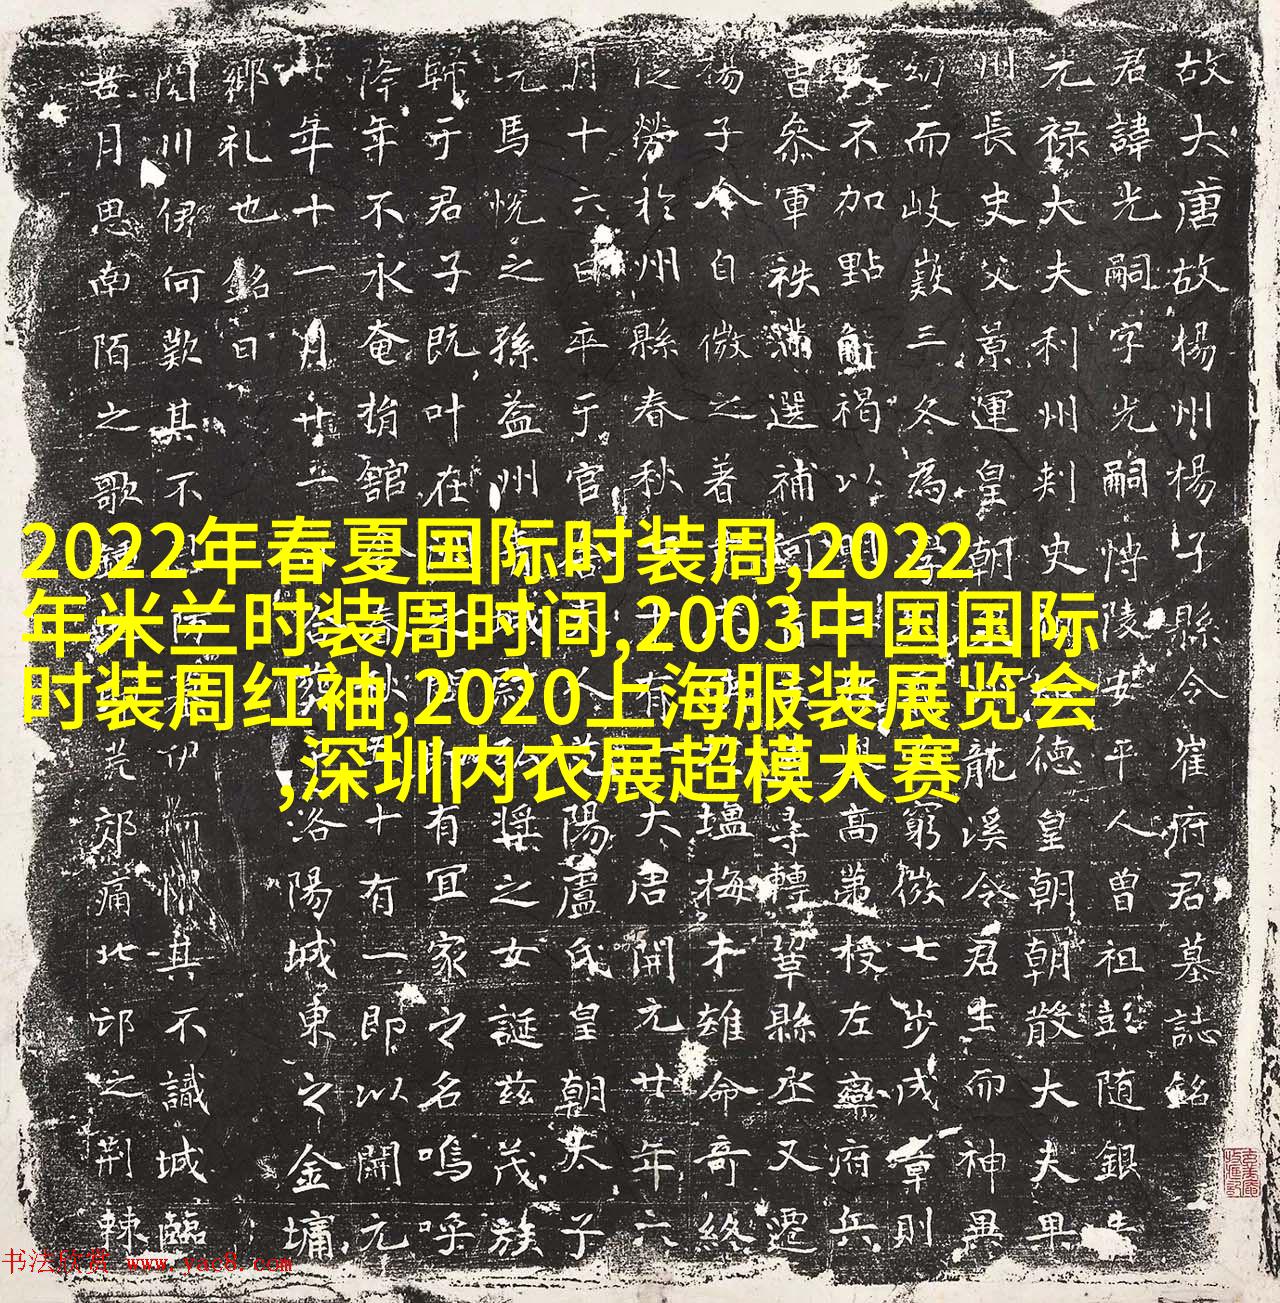 故大唐故楊州楊子縣令崔府君墓誌銘
君諱光嗣字光嗣愽陵安平人曾祖彭随銀青
光禄大夫利州刾史德皇朝朝散大夫甲
州長史父景運皇朝龍溪令君生而神異
幼而岐嶷三冬為學窮微七步成章則
文不加點觧褐以門高第授左衛府兵
曹叅軍秩滿選補河尋轉鞏縣丞又遷
楊子令自微之著塭梅木雄命奇終
從勞於州縣春秋五十有大唐開元廿年六
月十六日卒于官舍夫人范陽盧氏皇朝太子
洗馬悅之孫益州城之女誕茲茂族
歸于君子既叶在有宜家之名嗚呼
降年不永奄捐舘舍春秋五十有一即以開元
廿年十一月廿二洛陽城東之金墉
鄉礼也銘曰
閱川伊何歎其不伊何其不識城臨
思南陌之歌鍾荒郊痛北邙之荆棘
2022年春夏国际时装周,2022
年米兰时装周时间,2003中国国际
时装周红袖,2020上海服装展览会
,深圳内衣展超模大赛
书法欣赏 www.yac8.com